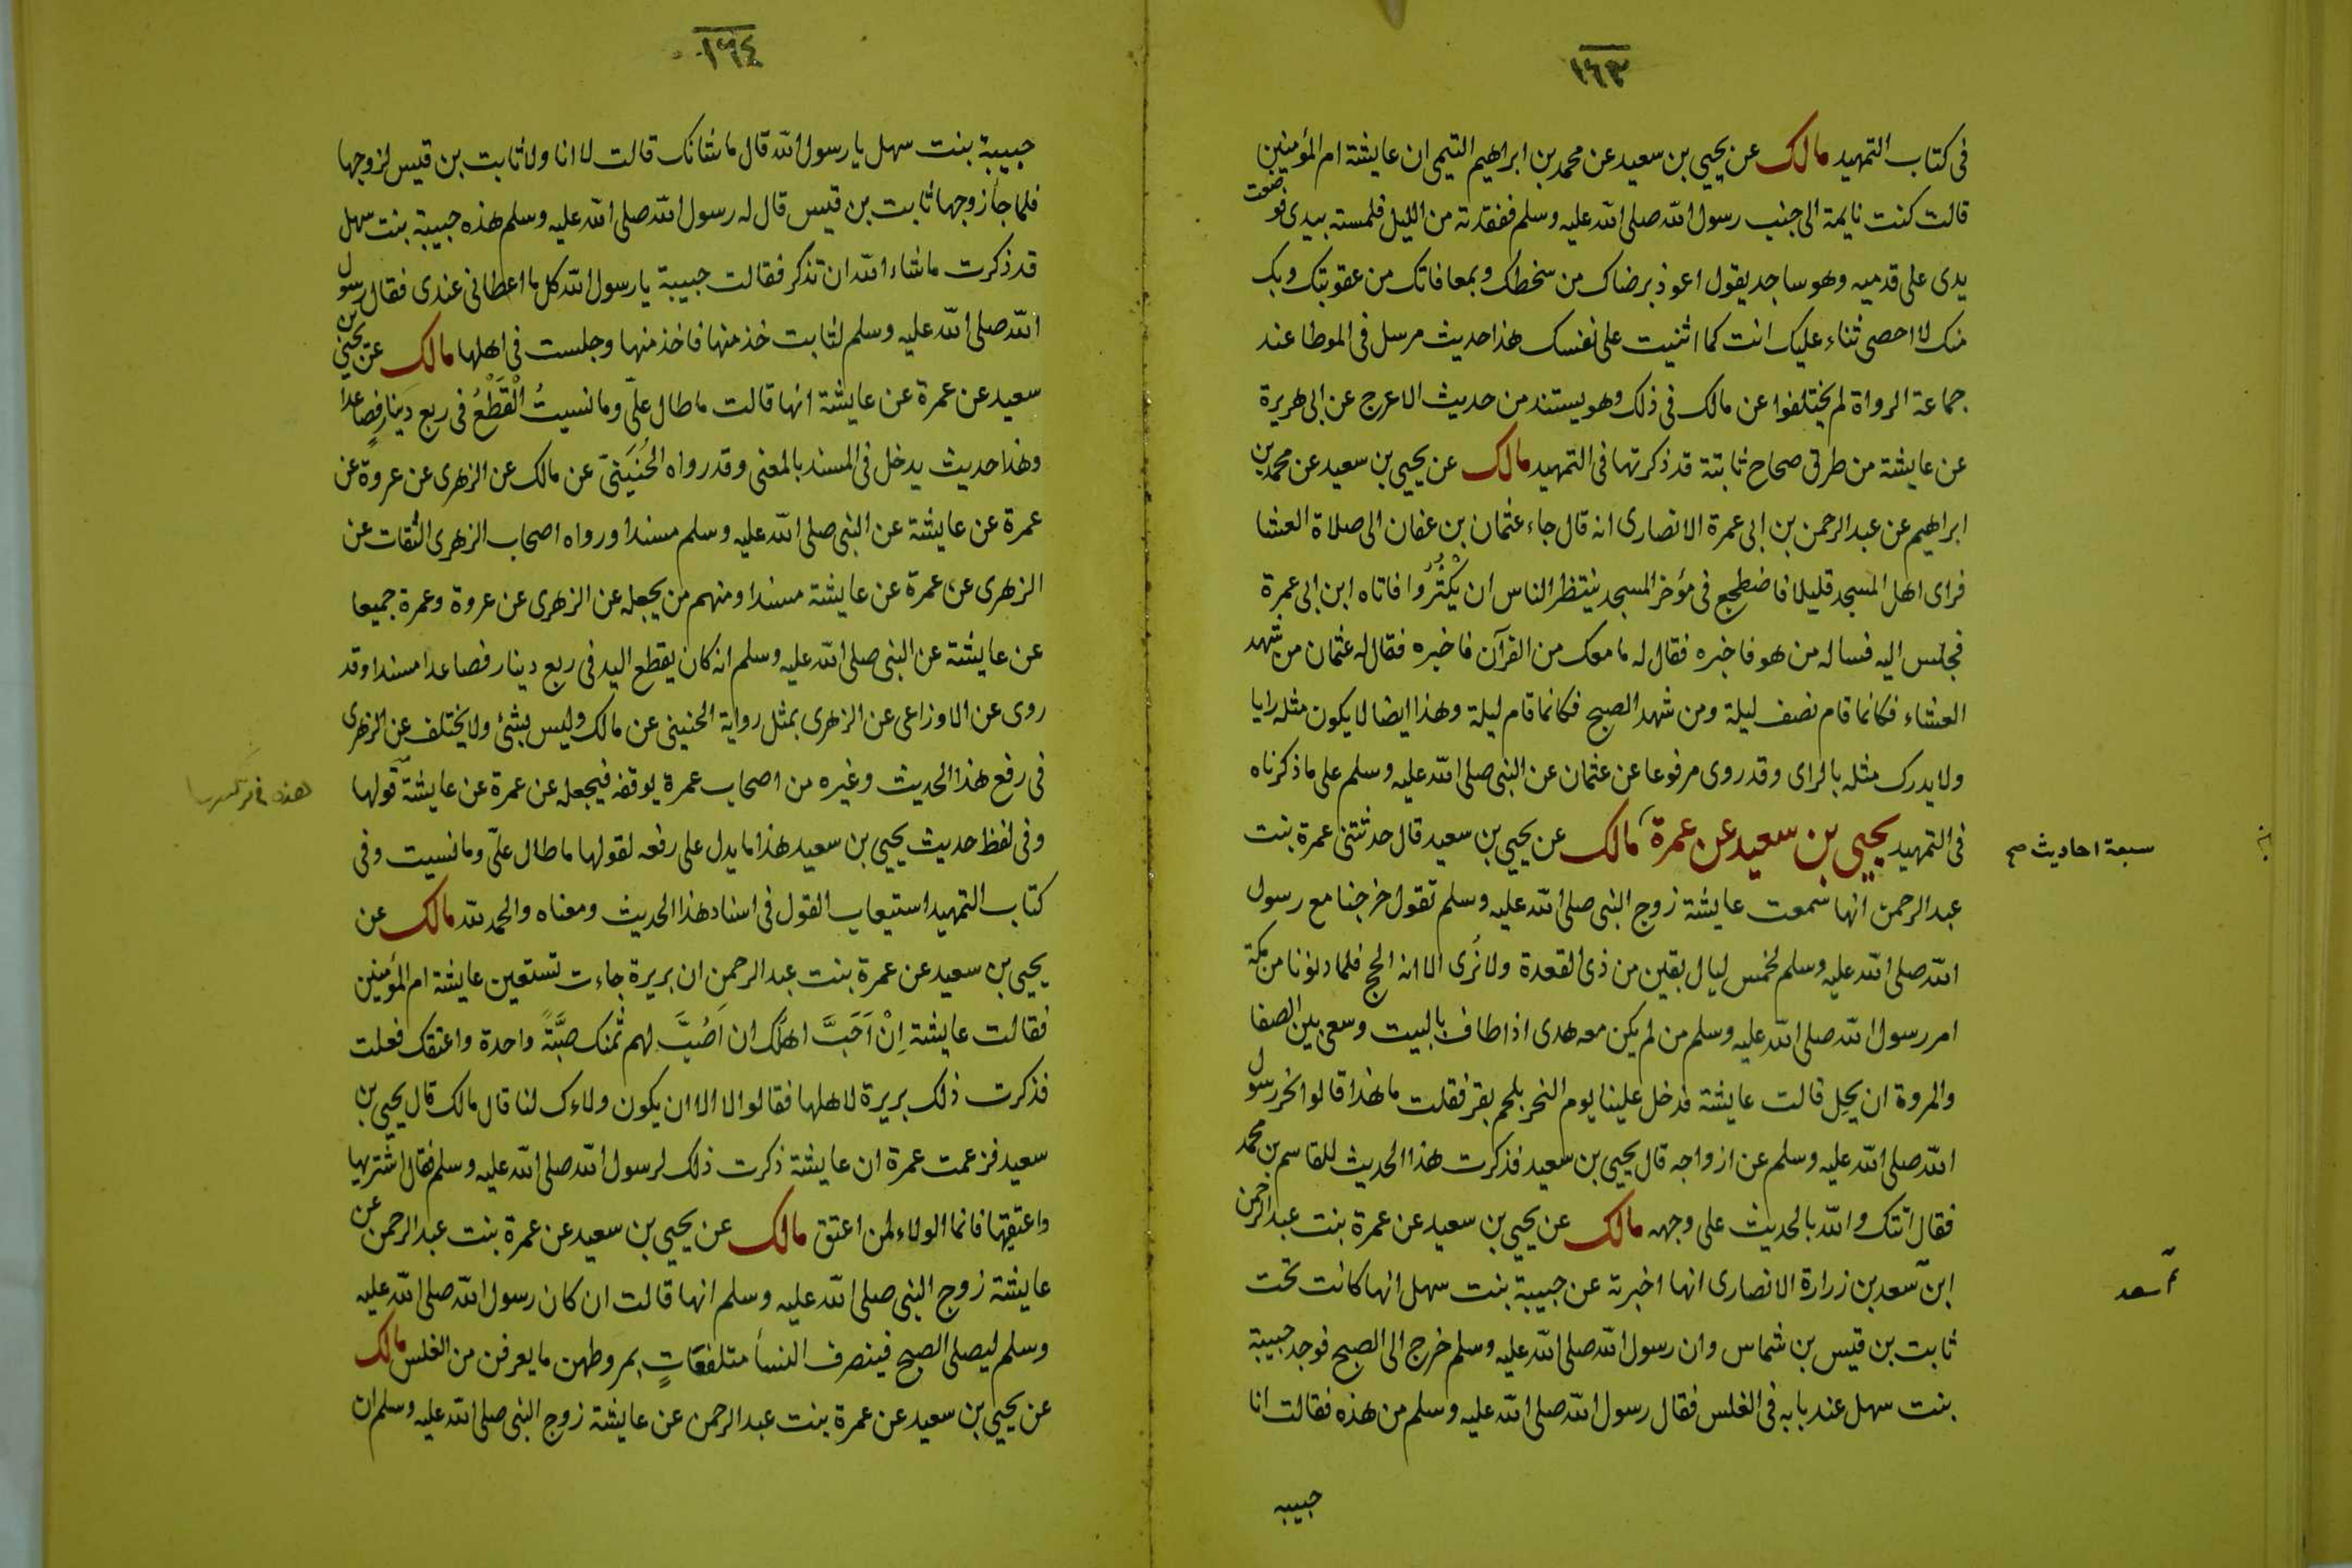 ١٦٣
فى كتاب التمهيد مالك عن يحيى بن سعيد عن محمد بن ابراهيم التيمى ان عايشة ام المؤمنين
قالت كنت نايمة الى جنب رسول الله صلى الله عليه وسلم ففقدته من الليل فلمسته بيدى فوضعت
يدى على قدميه وهو ساجد يقول اعوذ برضاك من سخطك وبمعافاتك من عقوبتك وبك
منك لا احصى ثناء عليك انت كما اثنيت على نفسك هذا حديث مرسل فى الموطا عند
جماعة الرواة لم يختلفوا عن مالك فى ذلك وهو يستند من حديث الاعرج عن ابى هريرة
عن عايشة من طرق صحاح ثابتة قد ذكرتها فى التمهيد مالك عن يحيى بن سعيد عن محمد بن
ابراهيم عن عبد الرحمن بن ابى عمرة الانصارى انه قال جاء عثمان بن عفان الى صلاة العشا
فراى اهل المسجد قليلا فاضطجع فى مؤخر المسجد ينتظر الناس ان يَكْثُرُوا فاتاه ابن ابى عمرة
فجلس اليه فساله من هو فاخبره فقال له ما معك من القرآن فاخبره فقال له عثمان من شهد
العشاء فكانما قام نصف ليلة ومن شهد الصبح فكانما قام ليلة وهذا ايضا لا يكون مثله رايا
ولا يدرك مثله بالراى وقد روى مرفوعا عن عثمان عن النبى صلى الله عليه وسلم على ما ذكرناه
فى التمهيد يحيى بن سعيد عن عمرة مالك عن يحيى بن سعيد قال حدثتنى عمرة بنت
سبعة احاديث صح
عبد الرحمن انها سمعت عايشة زوج النبى صلى الله عليه وسلم تقول خرجنا مع رسول
الله صلى الله عليه وسلم لخمس ليال بقين من ذى القعدة ولا نُرى الا انه الحج فلما دنونا من مكة
امر رسول الله صلى الله عليه وسلم من لم يكن معه هدى اذا طاف بالبيت وسعى بين الصفا
والمروة ان يحل قالت عايشة فدخل علينا يوم النحر بلحم بقر فقلت ما هذا قالوا نحر رسول
الله صلى الله عليه وسلم عن ازواجه قال يحيى بن سعيد فذكرت هذا الحديث للقاسم بن محمد
فقال اتتك والله بالحديث على وجهه مالك عن يحيى بن سعيد عن عمرة بنت عبد الرحمن
ابن سعد بن زرارة الانصارى انها اخبرته عن حبيبة بنت سهل انها كانت تحت
اسعد
ثابت بن قيس بن شماس وان رسول الله صلى الله عليه وسلم خرج الى الصبح فوجد حبيبة
بنت سهل عند بابه فى الغلس فقال رسول الله صلى الله عليه وسلم من هذه فقالت انا
حبيبه
١٦٤
حبيبة بنت سهل يا رسول الله قال ما شانك قالت لا انا ولا ثابت بن قيس لزوجها
فلما جأ زوجها ثابت بن قيس قال له رسول الله صلى الله عليه وسلم هذه حبيبة بنت سهل
قد ذكرت ما شاء الله ان تذكر فقالت حبيبة يا رسول الله كل ما اعطانى عندى فقال رسول
الله صلى الله عليه وسلم لثابت خذ منها فاخذ منها وجلست فى اهلها مالك عن يحيى بن
سعيد عن عمرة عن عايشة انها قالت ما طال علىّ وما نسيتُ الْقَطْعُ فى ربع دينار فصاعدا
وهذا حديث يدخل فى المسند بالمعنى وقد رواه الحُنَيْنىّ عن مالك عن الزهرى عن عروة عن
عمرة عن عايشة عن النبى صلى الله عليه وسلم مسندا ورواه اصحاب الزهرى الثقات عن
الزهرى عن عمرة عن عايشة مسندا ومنهم من يجعله عن الزهرى عن عروة وعمرة جميعا
عن عايشة عن النبى صلى الله عليه وسلم انه كان يقطع اليد فى ربع دينار فصاعدا مسندا وقد
روى عن الاوزاعى عن الزهرى بمثل رواية الحنينى عن مالك وليس بشئ ولا يختلف عن الزهرى
فى رفع هذا الحديث وغيره من اصحاب عمرة يوقفه فيجعله عن عمرة عن عايشة قولها
وفى لفظ حديث يحيى بن سعيد هذا ما يدل على رفعه لقولها ما طال علىّ وما نسيت وفى
كتاب التمهيد استيعاب القول فى اسناد هذا الحديث ومعناه والحمد لله مالك عن
يحيى بن سعيد عن عمرة بنت عبد الرحمن ان بريرة جاءت تستعين عايشة ام المؤمنين
فقالت عايشة اِنْ اَحَبَّ اهلك ان اَصُبَّ لهم ثمنك صَبَّةً واحدة واعتقك فعلت
فذكرت ذلك بريرة لاهلها فقالوا لا الا ان يكون ولاءك لنا قال مالك قال يحيى بن
سعيد فزعمت عمرة ان عايشة ذكرت ذلك لرسول الله صلى الله عليه وسلم فقال اشتريها
واعتقيها فانما الولاء لمن اعتق مالك عن يحيى بن سعيد عن عمرة بنت عبد الرحمن عن
عايشة زوج النبى صلى الله عليه وسلم انها قالت ان كان رسول الله صلى الله عليه
وسلم ليصلى الصبح فينصرف النسأ متلفعَاتٍ بمروطهن ما يعرفن من الغلس مالك
عن يحيى بن سعيد عن عمرة بنت عبد الرحمن عن عايشة زوج النبى صلى الله عليه وسلم ان